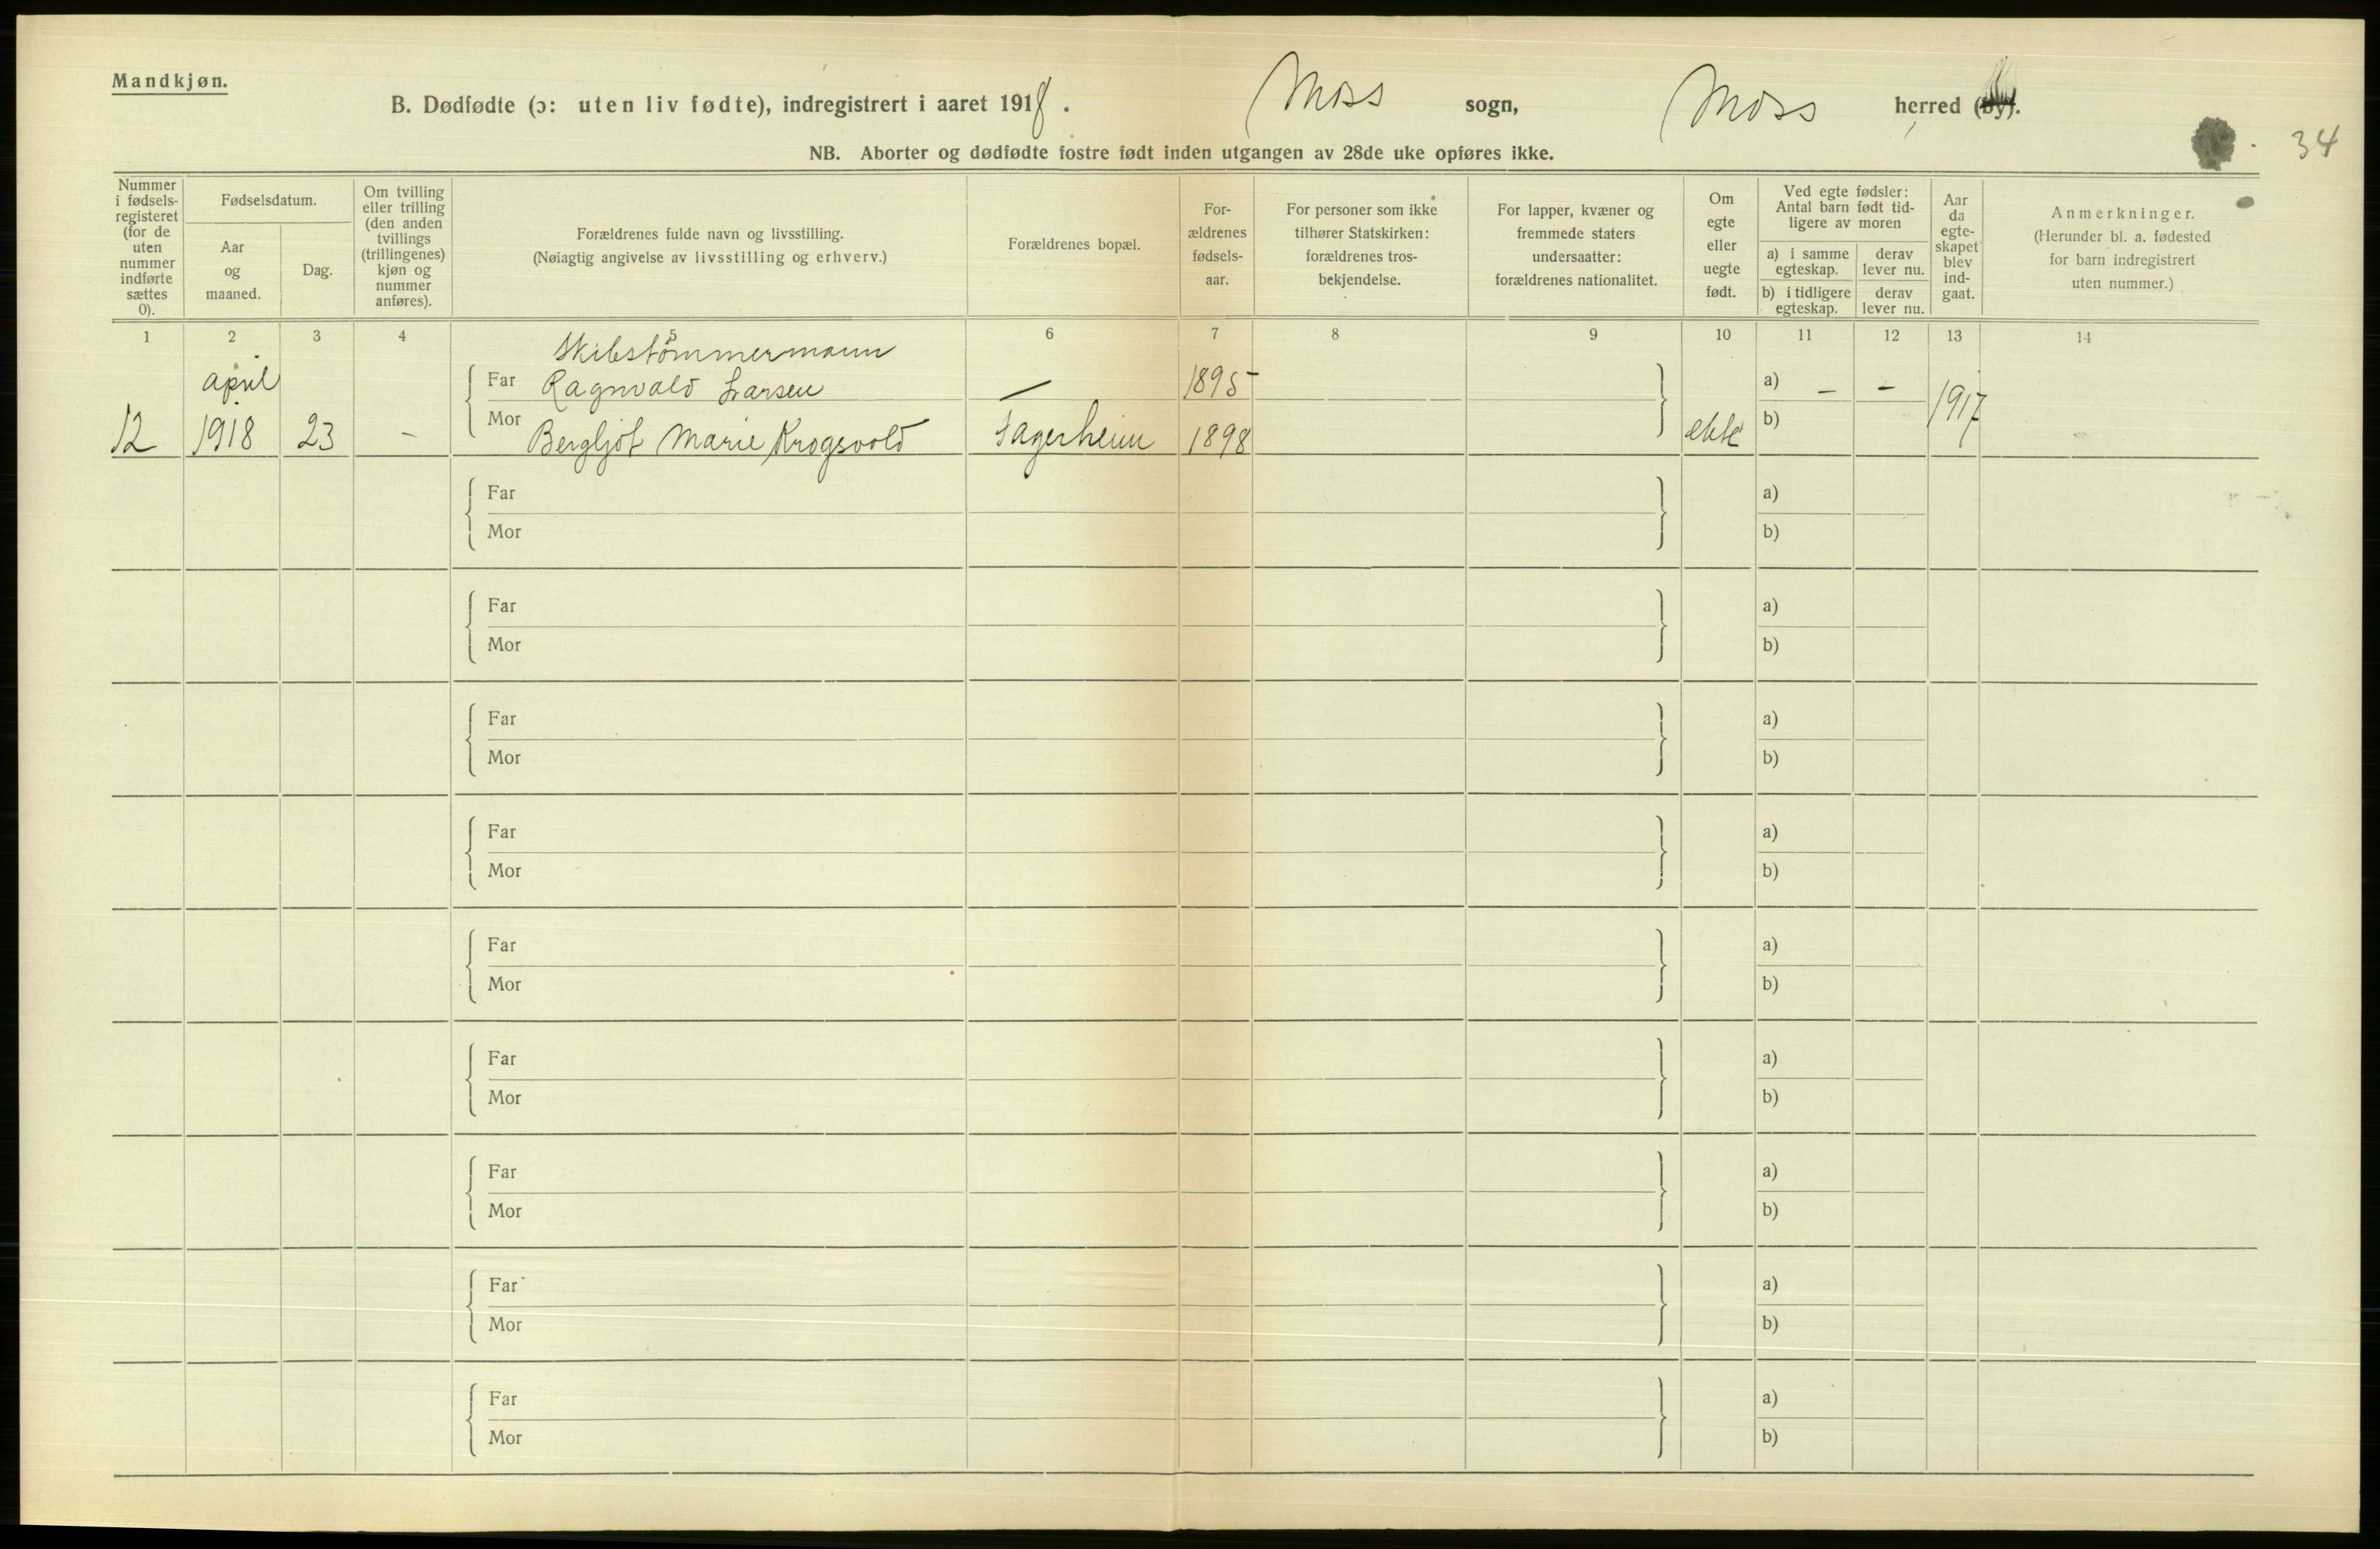 Mandkjøn.
B. Dødfødte (ɔ: uten liv fødte), indregistrert i aaret 1918. Moss sogn, Moss herred (by).
34
NB. Aborter og dødfødte fostre født inden utgangen av 28de uke opføres ikke.
Nummer i fødsels-registeret (for de uten nummer indførte sættes 0).
Fødselsdatum.
Aar og maaned.
Dag.
Om tvilling eller trilling (den anden tvillings (trillingenes) kjøn og nummer anføres).
Forældrenes fulde navn og livsstilling.
(Nøiagtig angivelse av livsstilling og erhverv.)
Forældrenes bopæl.
For-ældrenes fødsels-aar.
For personer som ikke tilhører Statskirken: forældrenes tros-bekjendelse.
For lapper, kvæner og fremmede staters undersaatter: forældrenes nationalitet.
Om egte eller uegte født.
Ved egte fødsler: Antal barn født tid-ligere av moren
a) i samme egteskap.
derav lever nu.
b) i tidligere egteskap.
derav lever nu.
Aar da egte-skapet blev ind-gaat.
Anmerkninger.
(Herunder bl. a. fødested for barn indregistrert uten nummer.)
1 2 3 4 5 6 7 8 9 10 11 12 13 14
Skibstømmermann
april Far Ragnvald Larsen — 1895 a) — — 1917
12 1918 23 — Mor Bergljot Marie Krogsvold Fagerheim 1898 ekte b)
Far a)
Mor b)
Far a)
Mor b)
Far a)
Mor b)
Far a)
Mor b)
Far a)
Mor b)
Far a)
Mor b)
Far a)
Mor b)
Far a)
Mor b)
Far a)
Mor b)